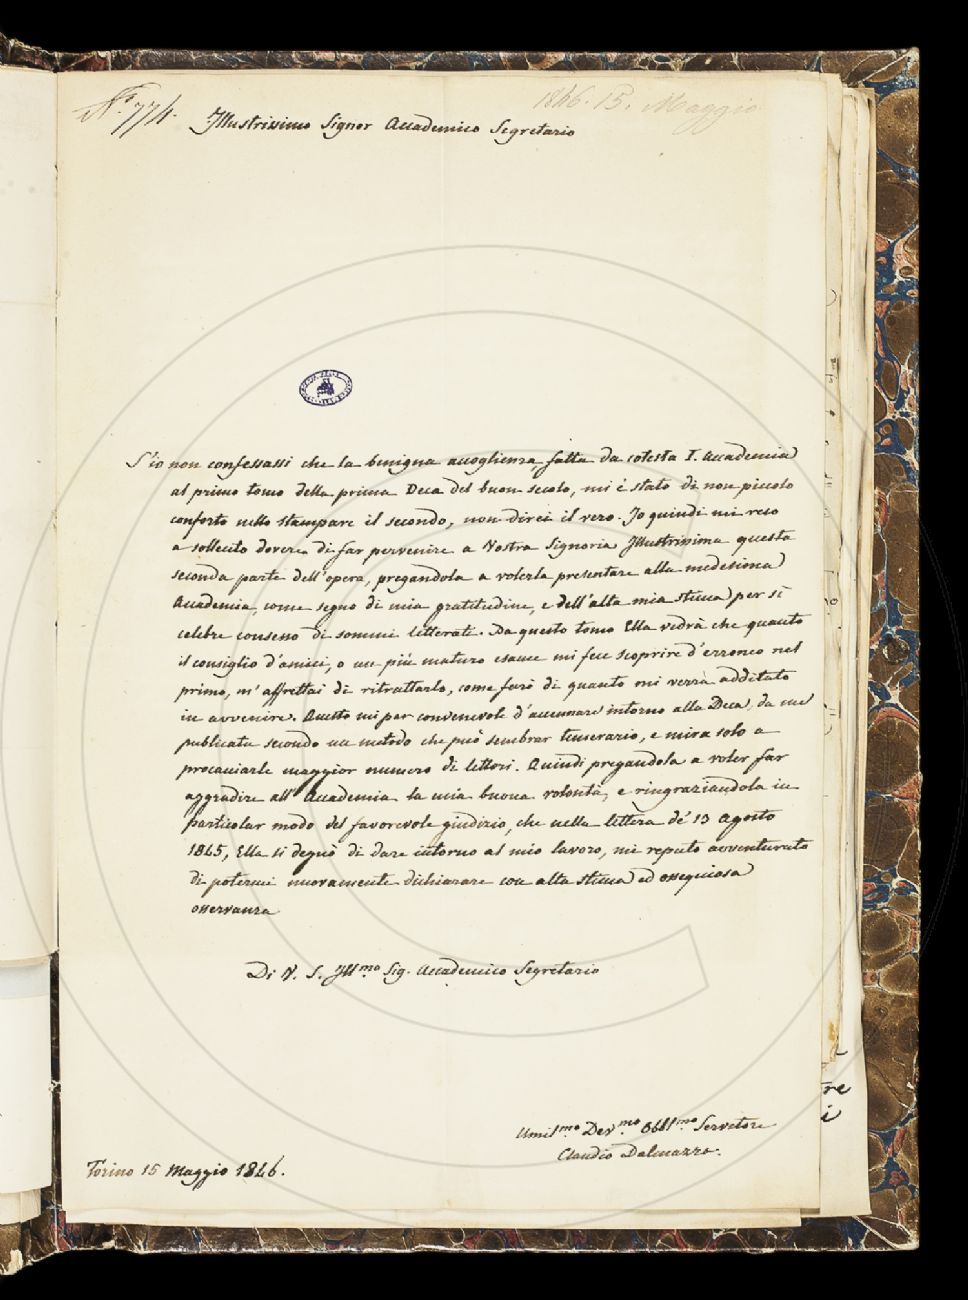 N.° 774.
1846. 15. Maggio
Illustrissimo Signor Accademico Segretario
S'io non confessassi che la benigna accoglienza, fatta da cotesta I. Accademia
al primo tomo della prima Deca del buon secolo, mi è stato di non piccolo
conforto nello stampare il secondo, non direi il vero. Io quindi mi reco
a sollecito dovere di far pervenire a Vostra Signoria Illustrissima questa
seconda parte dell'opera, pregandola a volerla presentare alla medesima
Accademia, come segno di mia gratitudine, e dell'alta mia stima per sì
celebre consesso di sommi letterati. Da questo tomo Ella vedrà che quanto
il consiglio d'amici, o un più maturo esame mi fece scoprire d'erroneo nel
primo, m'affrettai di ritrattarlo, come farò di quanto mi verrà additato
in avvenire. Questo mi par convenevole d'accennare intorno alla Deca, da me
publicata secondo un metodo che può sembrar temerario, e mira solo a
procacciarle maggior numero di lettori. Quindi pregandola a voler far
aggradire all'Accademia la mia buona volontà, e ringraziandola in
particolar modo del favorevole giudizio, che nella lettera de' 13 agosto
1845, Ella si degnò di dare intorno al mio lavoro, mi reputo avventurato
di potermi nuovamente dichiarare con alta stima ed ossequiosa
osservanza
Di V. S. Ill.mo Sig. Accademico Segretario
Umil.mo Dev.mo Obbl.mo Servitore
Claudio Dalmazzo.
Torino 15 Maggio 1846.